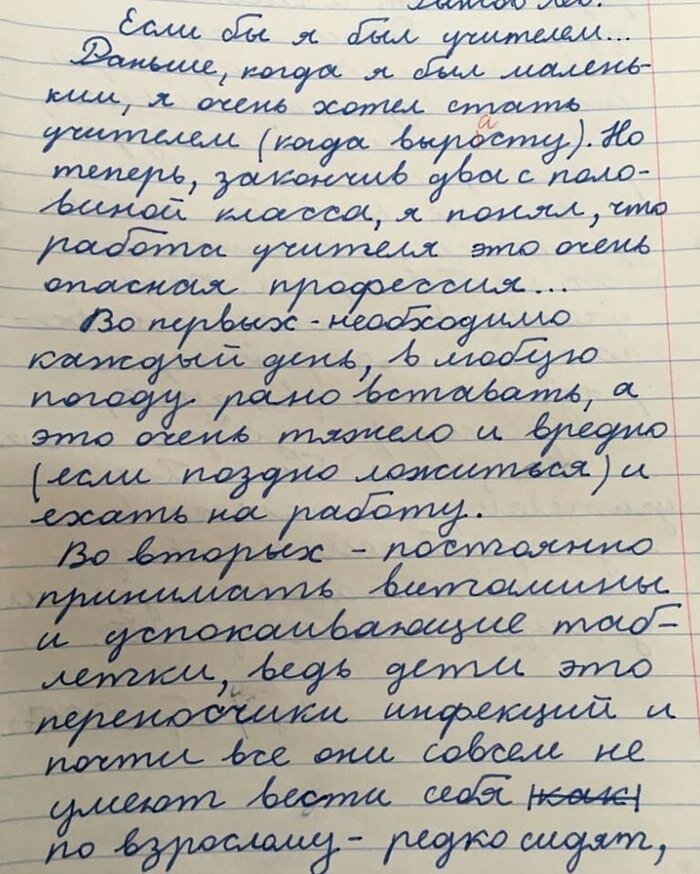 Если бы я был учителем...
Раньше, когда я был малень-
ким, я очень хотел стать
учителем (когда выросту). Но
а
теперь, закончив два с поло-
виной класса, я понял, что
работа учителя это очень
опасная профессия...
Во первых - необходимо
каждый день, в любую
погоду рано вставать, а
это очень тяжело и вредно
(если поздно ложиться) и
ехать на работу.
Во вторых - постоянно
принимать витамины
и успокаивающие таб-
летки, ведь дети это
переносчики инфекций и
почти все они совсем не
умеют вести себя как
по взрослому - редко сидят,